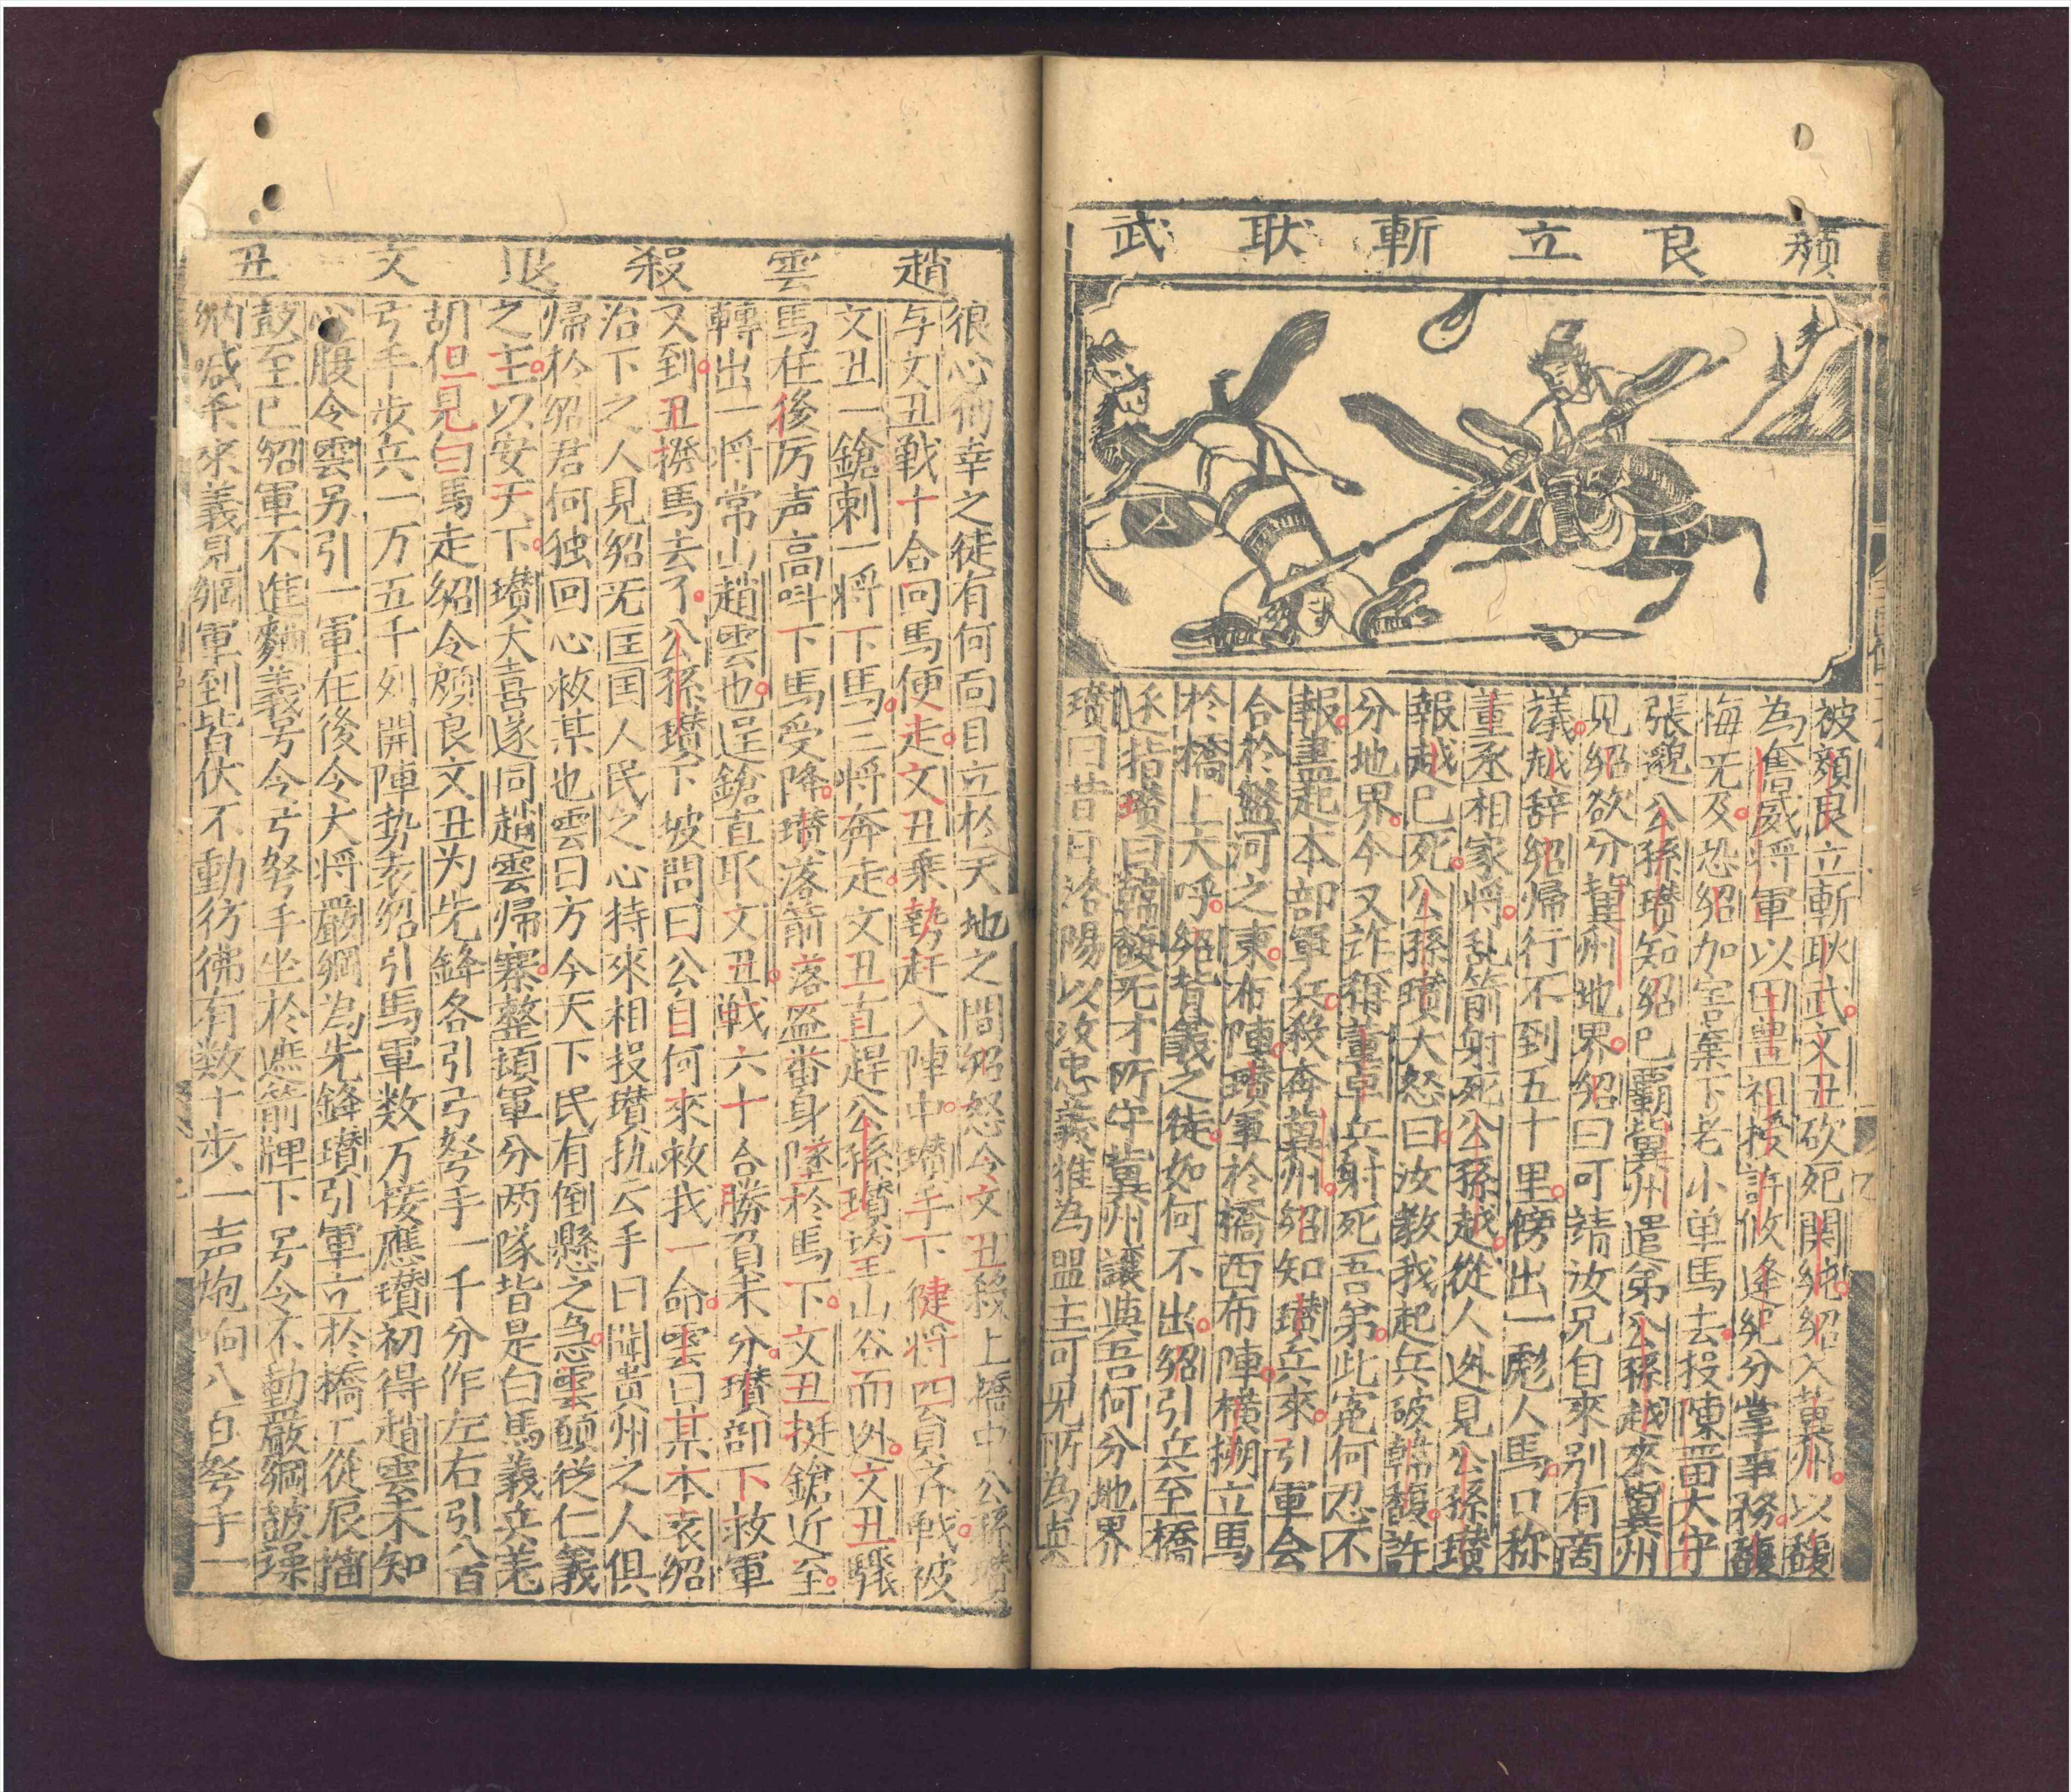 顏良立斬耿武
被顏良立斬耿武文丑砍死関純紹入冀州以馥
為奮威将軍以田豊祖授許攸逢紀分掌事務馥
悔旡及恐紹加害棄下老小单馬去投陳畱大守
張邈公孫瓉知紹巳覇冀州遣弟公孫越來冀州
见紹欲分冀州地界紹曰可請汝兄自來别有啇
議越辞紹帰行不到五十里傍出一彪人馬口称
董丞相家将乱箭射死公孫越從人迯見公孫瓉
報越已死公孫瓉大怒曰汝教我起兵破韓馥許
分地界今又詐稱董卓兵射死吾弟此寃何忍不
報盡起本部軍兵殺奔冀州紹知瓉兵來引軍会
合於盤河之東布陣瓉軍於橋西布陣横搠立馬
於橋上大呼紹背義之徒如何不出紹引兵至橋
迯指瓉曰韓馥旡才所守冀州讓與吾何分地界
瓉曰昔日洛陽以汝忠義推為盟主可见所為真
趙雲殺退文丑
狼心狗幸之徒有何面目立於天地之間紹怒令文丑殺上橋中公孫瓉
与文丑戦十合回馬便走文丑乗勢赶入陣中瓉手下健将四員斉戦被
文丑一鎗刺一将下馬三将奔走文丑直趕公孫瓉望山谷而迯文丑驟
馬在後厉声高呌下馬受降瓉落箭落盔畨身墜於馬下文丑挺鎗近至
轉出一将常山趙雲也逞鎗直取文丑戦六十合勝負未分瓉部下救軍
又到丑撥馬去了公孫瓉下坡問曰公自何來救我一命雲曰某本袁紹
治下之人見紹旡匡国人民之心特來相投瓉执云手曰聞贵州之人俱
帰於紹君何独回心救某也雲曰方今天下民有倒懸之急雲願從仁義
之主以安天下瓉大喜遂同趙雲帰寨整頓軍分两隊皆是白馬義兵羌
胡但見白馬走紹令顔良文丑为先鋒各引弓弩手一千分作左右引八百
弓手步兵一万五千列開陣势袁紹引馬軍数万接應瓉初得趙雲未知
心腹令雲另引一軍在後令大将嚴綱為先鋒瓉引軍立於橋上從辰擂
鼓至巳紹軍不進麹義号令弓弩手坐於遮箭牌下号令不動嚴綱皷譟
納喊杀來義見綱軍到皆伏不動彷彿有数十步一声炮响八百弩手一